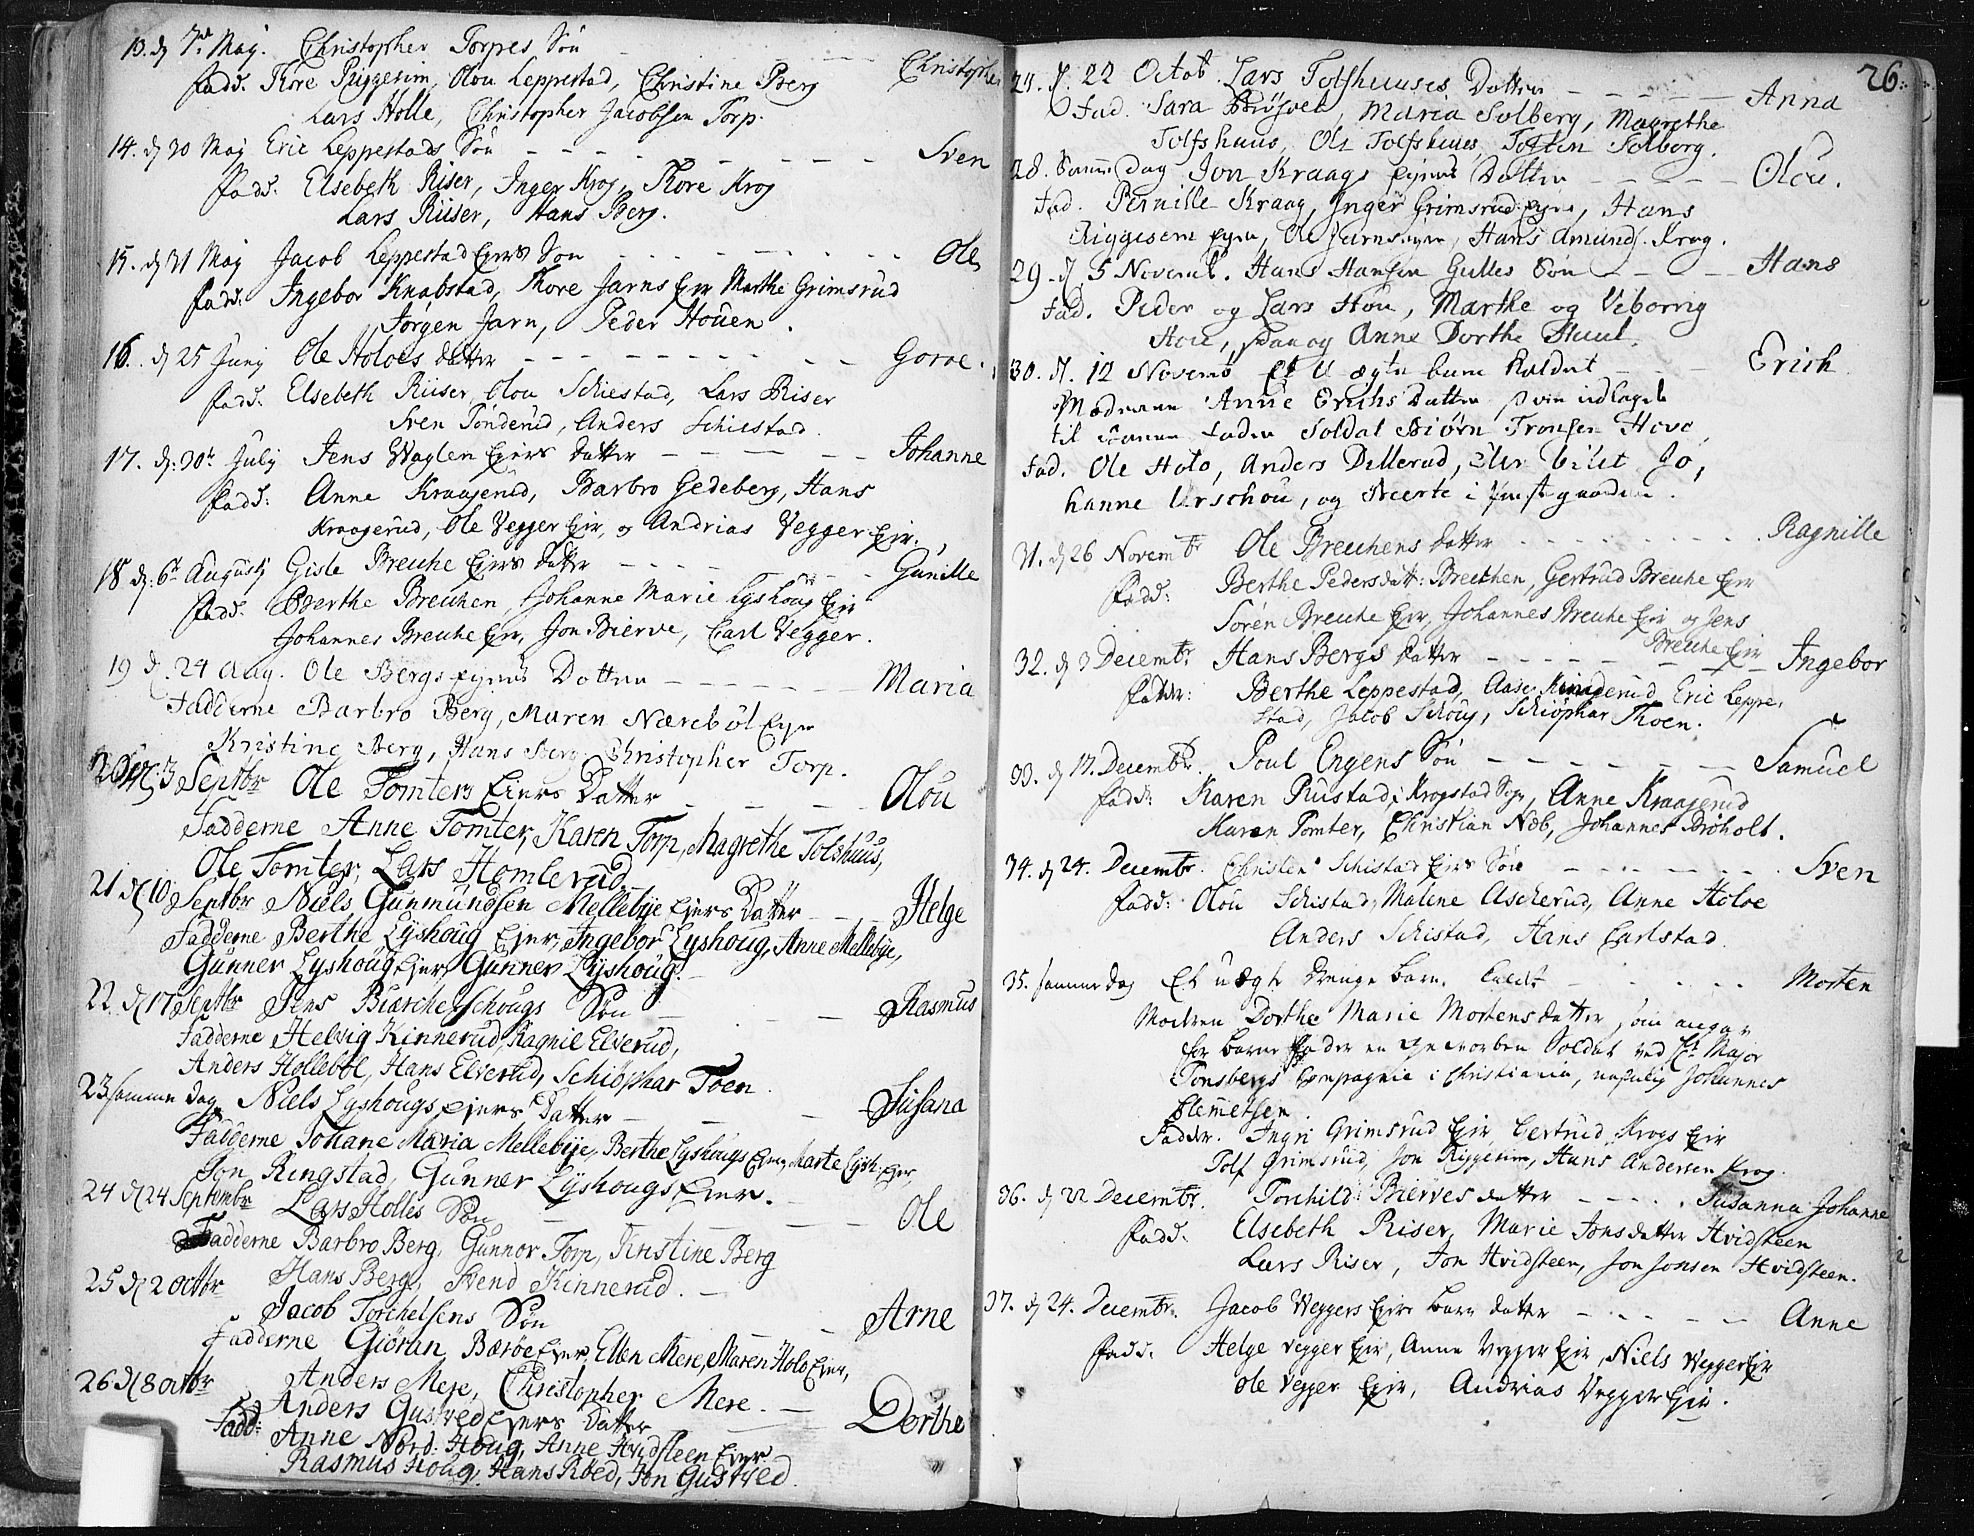 13. d 7de Maj. Christopher Torpes Søn - - - Christopher
Fadd. Thore Riggesim, Olou Leppestad, Christine Berg
Lars Holle, Christopher Jacobsen Torp.
14. d 30 Maj Eric Leppestads Søn - - - Sven
Fadd. Elsebeth Riser, Inger Krog, Thore Krog
Lars Riiser, Hans Berg.
15. d 31 Maj Jacob Leppestad Ejers Søn - - - Ole
Fadd. Ingebor Knabstad, Thore Jarns Ejer Marthe Grimsrud
Jørgen Jarn, Peder Houen.
16. d 25 Junij Ole Holoes datter - - - Goroe.
Fadd. Elsebeth Riiser, Olou Schiestad, Lars Riser
Sven Tønderud, Anders Schiestad.
17. d: 30t July Jens Waglen Ejers datter - - - Johanne
Fadd: Anne Kraagerud, Barbro Gedeberg, Hans
Kraagerud, Ole Vegger Ejer, og Andrias Vegger Ejer.
18 d: 6t Augustj Gisle Breuhe Ejers datter - - - Gunille
Fadd. Berthe Breuhen, Johanne Marie Lyshoug Ejer
Johannes Breuhe Ejer, Jon Bierve, Carl Vegger.
19 d. 24 Aug. Ole Bergs Eyers Dotter - - - Maria
Fadderne Barbro Berg, Maren Nærebøl Eyer
Kristine Berg, Hans Berg Christopher Torp.
20 d: 3 Septbr Ole Tomters Ejers Datter - - - Olou
Fadderne Anne Tomter, Karen Torp, Magrethe Tolshuus,
Ole Tomter, Lars Homlerud.
21 d 10 Septbr Niels Gunmundsen Mellebye Ejers Datter - - - Helge
Fadderne Berthe Lyshoug Ejer, Ingebor Lyshoug, Anne Mellebye,
Gunner Lyshoug Ejer, Gunner Lyshoug.
22 d 17 Septbr Jens Biørche Schougs Søn - - - Rasmus
Fadderne Helvig Kinnerud, Ragnil Elverud,
Anders Hollebøl, Hans Elverud, Schiøphar Toen.
23 samme dag Niels Lyshougs Ejers Datter - - - Susana
Fadderne Johane Maria Mellebye, Berthe Lyshougs Ejer, Marte Lysh. Ejer,
Jon Ringstad, Gunner Lyshougs Ejer.
24 d 24 Septembr Lars Holles Søn - - - Ole
Fadderne Barbro Berg, Gunnor Torp, Kristine Berg
Hans Berg, Svend Kinnerud.
25 d 2 octbr Jacob Torchelsens Søn - - - Arne
Fadderne Giöran Bærøe Ejer, Ellen Mere, Maren Holo Ejer,
Anders Mere, Christopher Mere.
26 d 8 octbr Anders Gusived Ejers Datter - - - Dorthe
Fadd: Anne Nord: Houg, Anne Hvidsteen Ejer
Rasmus Houg, Hans Roed, Jon Gustved.
26.
d. 22 Octob. Lars Tolfshuuses Datter - - - Anna
Fad. Sara, Maria Solberg, Magrethe
Tolfshuus, Ole Tolfshuus, Solberg.
28. Samme dag Jon Kraags Eyers Datter - - - Olou.
Fad. Pernille Kraag, Inger Grimsrud Eyer, Hans
Riggesem Eyer, Ole, Hans Amunds. Krog.
29. d. 5 Novemb. Hans Hansen Gulles Søn - - - Hans
Fad. Peder og Lars Hou, Marthe og Viborrig
Hou, og Anne Dorthe Huul.
30. d. 12 Novemb et U ægte barn kaldet - - - Erich
Moderen Anne Erichs Datter som udlagde
til Barne Fader Soldat Biørn Tronsen Hovd,
Fad. Ole Holo, Anders Dillerud, Jo,
hanne Urschou, og Neerte i Præstegaarden.
31. d 26 Novembr Ole Breuchens datter - - - Ragnille
Fadd: Berthe Pedersdatt: Breuchen, Gertrud Breuhe Ejer
Søren Breuhe Ejer, Johannes Breuhe Ejer og Jens
Breuche Ejer
32. d 3 Decembr. Hans Bergs datter - - - Ingebor
Fadder: Berthe Leppestad, Aase Kinnerud, Eric Leppe,
stad, Jacob Schoug, Schiøphar Thoen.
33. d 17. Decembr. Poul Engens Søn - - - Samuel
Fadd: Karen Rustad i Krogstad Sogn, Anne Kraagerud
Karen Tomter, Christian Næb, Johannes Brøholt.
34. d 24. Decembr. Christen Schistad Ejers Søn - - - Sven
Fadd: Olou Schistad, Malene Ascherud, Anne Holoe
Anders Schistad, Hans Carlstad.
35. samme dag Et uægte Drenge barn. Caldt - - - Morten
Moderen Dorthe Marie Mortensdatter, som angav
for barne Fader en geworben Soldat ved Hr Major
Tønsbergs Compagnie i Christiania, nafnlig Johannes
Clemetsen.
Fadder. Ingri Grimsrud Ejer, Gertrud Krogs Ejer
Tolf Grimsrud, Jon Riggesim, Hans Andersen Krog.
36. d 22 Decembr. Torchild Bierves datter - - - Susanna Johanne
Fadd. Elsebeth Riser, Marie Jonsdatter Hvidsteen
Lars Riser, Jon Hvidsteen, Jon Jonsen Hvidsteen.
37. d 24. Decembr. Jacob Veggers Ejers barn datter - - - Anne
Fadd. Helge Vegger Ejer, Anne Vegger Ejer, Niels Vegger Ejer
Ole Vegger Ejer, Andrias Vegger Ejer.